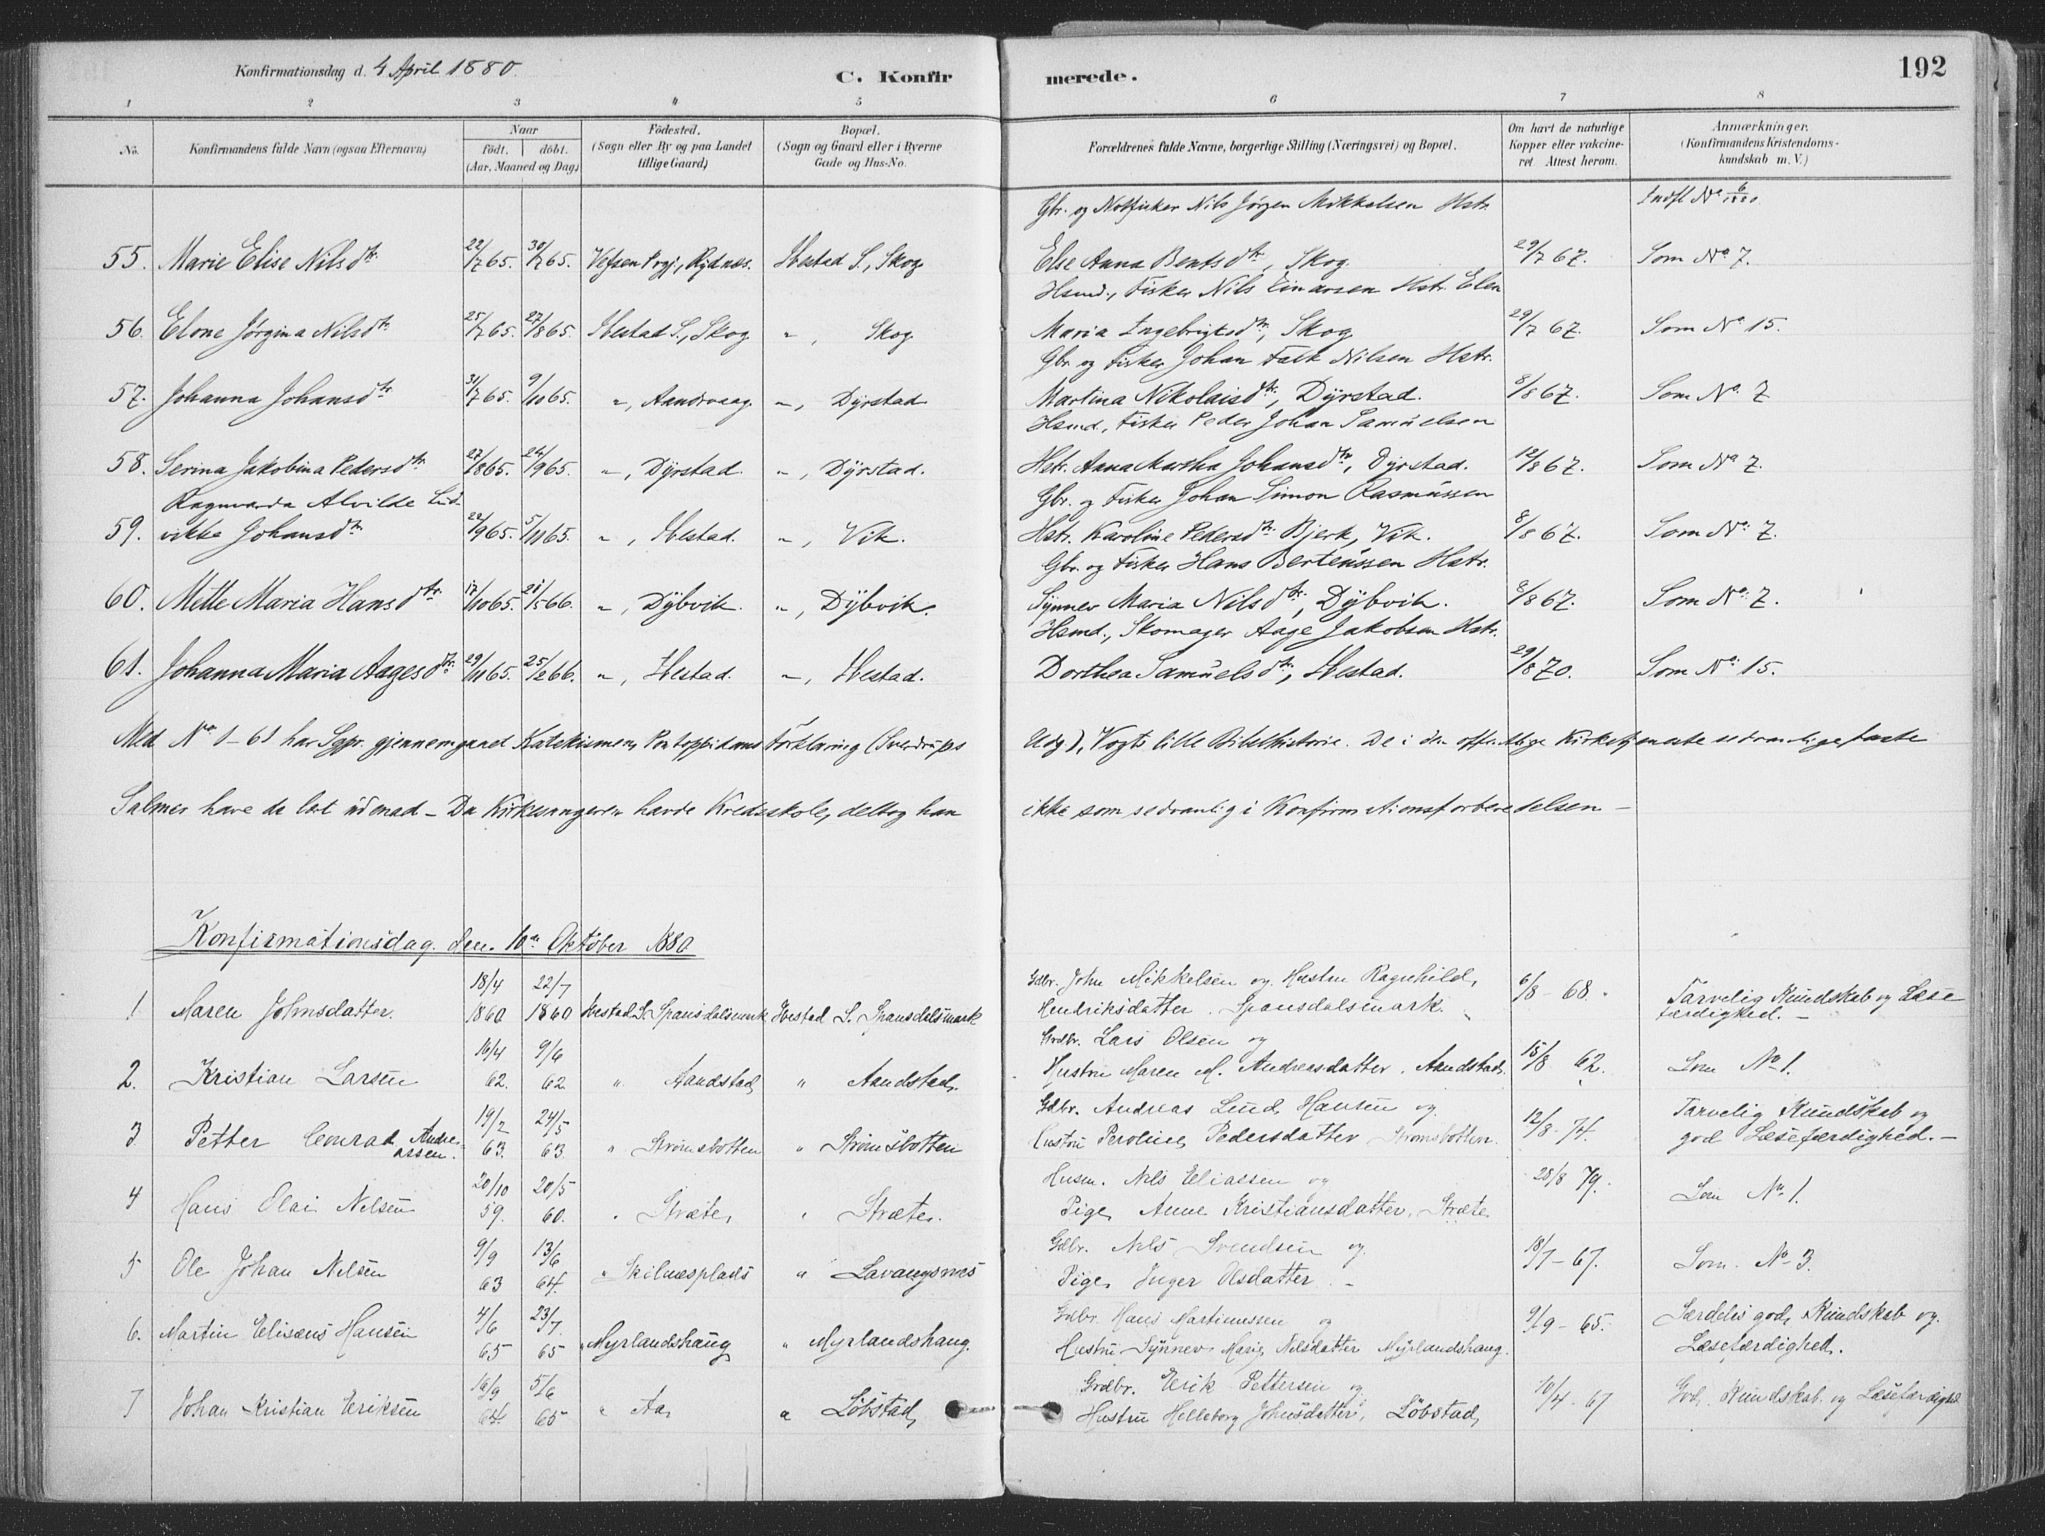 Konfirmationsdag d. 4 April 1880.
C. Konfirmerede.
192
1 2 3 4 5 6 7 8
No.
Konfirmandens fulde Navn (ogsaa Efternavn)
Naar
födt. döbt.
(Aar, Maaned og Dag)
Födested.
(Sogn eller By og paa Landet
tillige Gaard)
Bopæl.
(Sogn og Gaard eller i Byerne
Gade og Hus-No.
Forældrenes fulde Navne, borgerlige Stilling (Næringsvei) og Bopæl.
Om havt de naturlige
Kopper eller vakcine-
ret. Attest herom.
Anmærkninger.
(Konfirmandens Kristendoms-
kundskab m. V.)
Gbr. og Notfisker Nils Jörgen Mikkelsen Hstr. Indfl No 6/1880
55. Marie Elise Nilsdtr. 22/7 65. 30/7 65. Vefsen Prgj., Rydnæs. Ibestad S., Skog Else Anna Bentsdtr., Skog. 29/7 67. Som No 7.
Hsmd., Fisker Nils Einarsen Hstr. Elen
56. Elone Jörgina Nilsdtr. 25/7 65. 27/8 65. Ibestad S., Skog " , Skog Maria Ingebrigtsdtr., Skog 29/7 67. Som No 15.
Gbr. og Fisker Johan Falk Nilsen Hstr.
57. Johanna Johansdtr. 31/7 65. 9/10 65. " , Aandervaag " , Dyrstad Martina Nikolaisdtr., Dyrstad. 8/8 67. Som No 7
Hsmd., Fisker Peder Johan Samuelsen
58. Serina Jakobina Pedersdtr. 27/8 65. 24/9 65. " , Dyrstad. " , Dyrstad. Hstr. Anna Martha Johansdtr., Dyrstad. 12/8 67. Som No 7.
Ragnvarda Alvilde Lud- Gbr. og Fisker Johan Simon Rasmussen
59. vikke Johansdtr. 22/9 65. 5/11 65. " , Ibestad. " , Vik. Hstr. Karoline Pedersdtr. Bjerk, Vik. 8/8 67. Som No 7.
Gbr. og Fisker Hans Berteussen Hstr.
60. Mette Maria Hansdtr. 17/10 65. 21/5 66. " , Dybvik. " , Dybvik. Synnev Maria Nilsdtr., Dybvik. 8/8 67. Som No 7.
Hsmd., Skomager Aage Jakobsen Hstr.
61. Johanna Maria Aagesdtr. 29/11 65. 25/2 66. " , Ibestad. " , Ibestad. Dorthea Samuelsdtr., Ibestad. 29/8 70. Som No 15.
Med No 1-61 har Sgpr. gjennemgaaet Katekismen, Pontoppidans Forklaring (Sverdrups Udg.), Vogts lille Bibelhistorie. De i den offentlige Kirketjeneste sedvanlige faste
Salmer have de lært udenad – Da Kirkesangeren havde Kredsskole, deltog han ikke som sedvanlig i Konfirmationsforberedelsen –
Konfirmationsdag den 10de Oktober 1880
18/4 22/7 Gdbr. John Mikkelsen og Hustru Ragnhild 6/8 - 68. Tarvelig Kundskab og Læse
1 Maren Johnsdatter. 1860 1860 Ibestad S. Spansdalsmark Ibestad S. Spansdalsmark Hendriksdatter. Spansdalsmark. færdighed. –
16/4 9/6 Grdbr. Lars Olsen og
2. Kristian Larsen 62. 62 " Aandstad " Aandstad. Hustru Maren M. Andreasdatter. Aandstad. 15/8 62. Som No 1.
19/2 24/5 Gdbr. Andreas Lund Hansen og Tarvelig Kundskab og
3 Petter Conrad Andreassen. 63. 63. " Strömsbotten " Strömsbotten Hustru Peroline Pedersdatter Strömsbotten. 12/8 - 74. god Læsefærdighed. –
20/10 20/5 Husm. Nils Eliassen og 28/8 79.
4 Hans Olai Nelsen 59. 60. " Stræte, " Stræte. Pige Anne Kristiansdatter. Stræte Som No 1.
9/9 13/6 Gdbr. Nils Svendsen og
5 Ole Johan Nelsen 63 64. " Skilnæsplads " Lavangsnæs Pige Inger Olsdatter. – 18/7 - 67. Som No 3.
4/6 23/7 Grdbr. Hans Martinussen og Særdeles god Kundskab og
6. Martin Elisæus Hansen 65 65 " Myrlandshaug " Myrlandshaug. Hustru Synnev Marie Nilsdatter Myrlandshaug. 9/9 - 65. Læsefærdighed.
16/9 5/6 Grdbr. Erik Pettersen og
7 Johan Kristian Eriksen 64 65 " Aa, " Löbstad, Hustru Helleborg Johnsdatter, Löbstad, 10/4 - 67 God Kundskab og Læsefærdighed